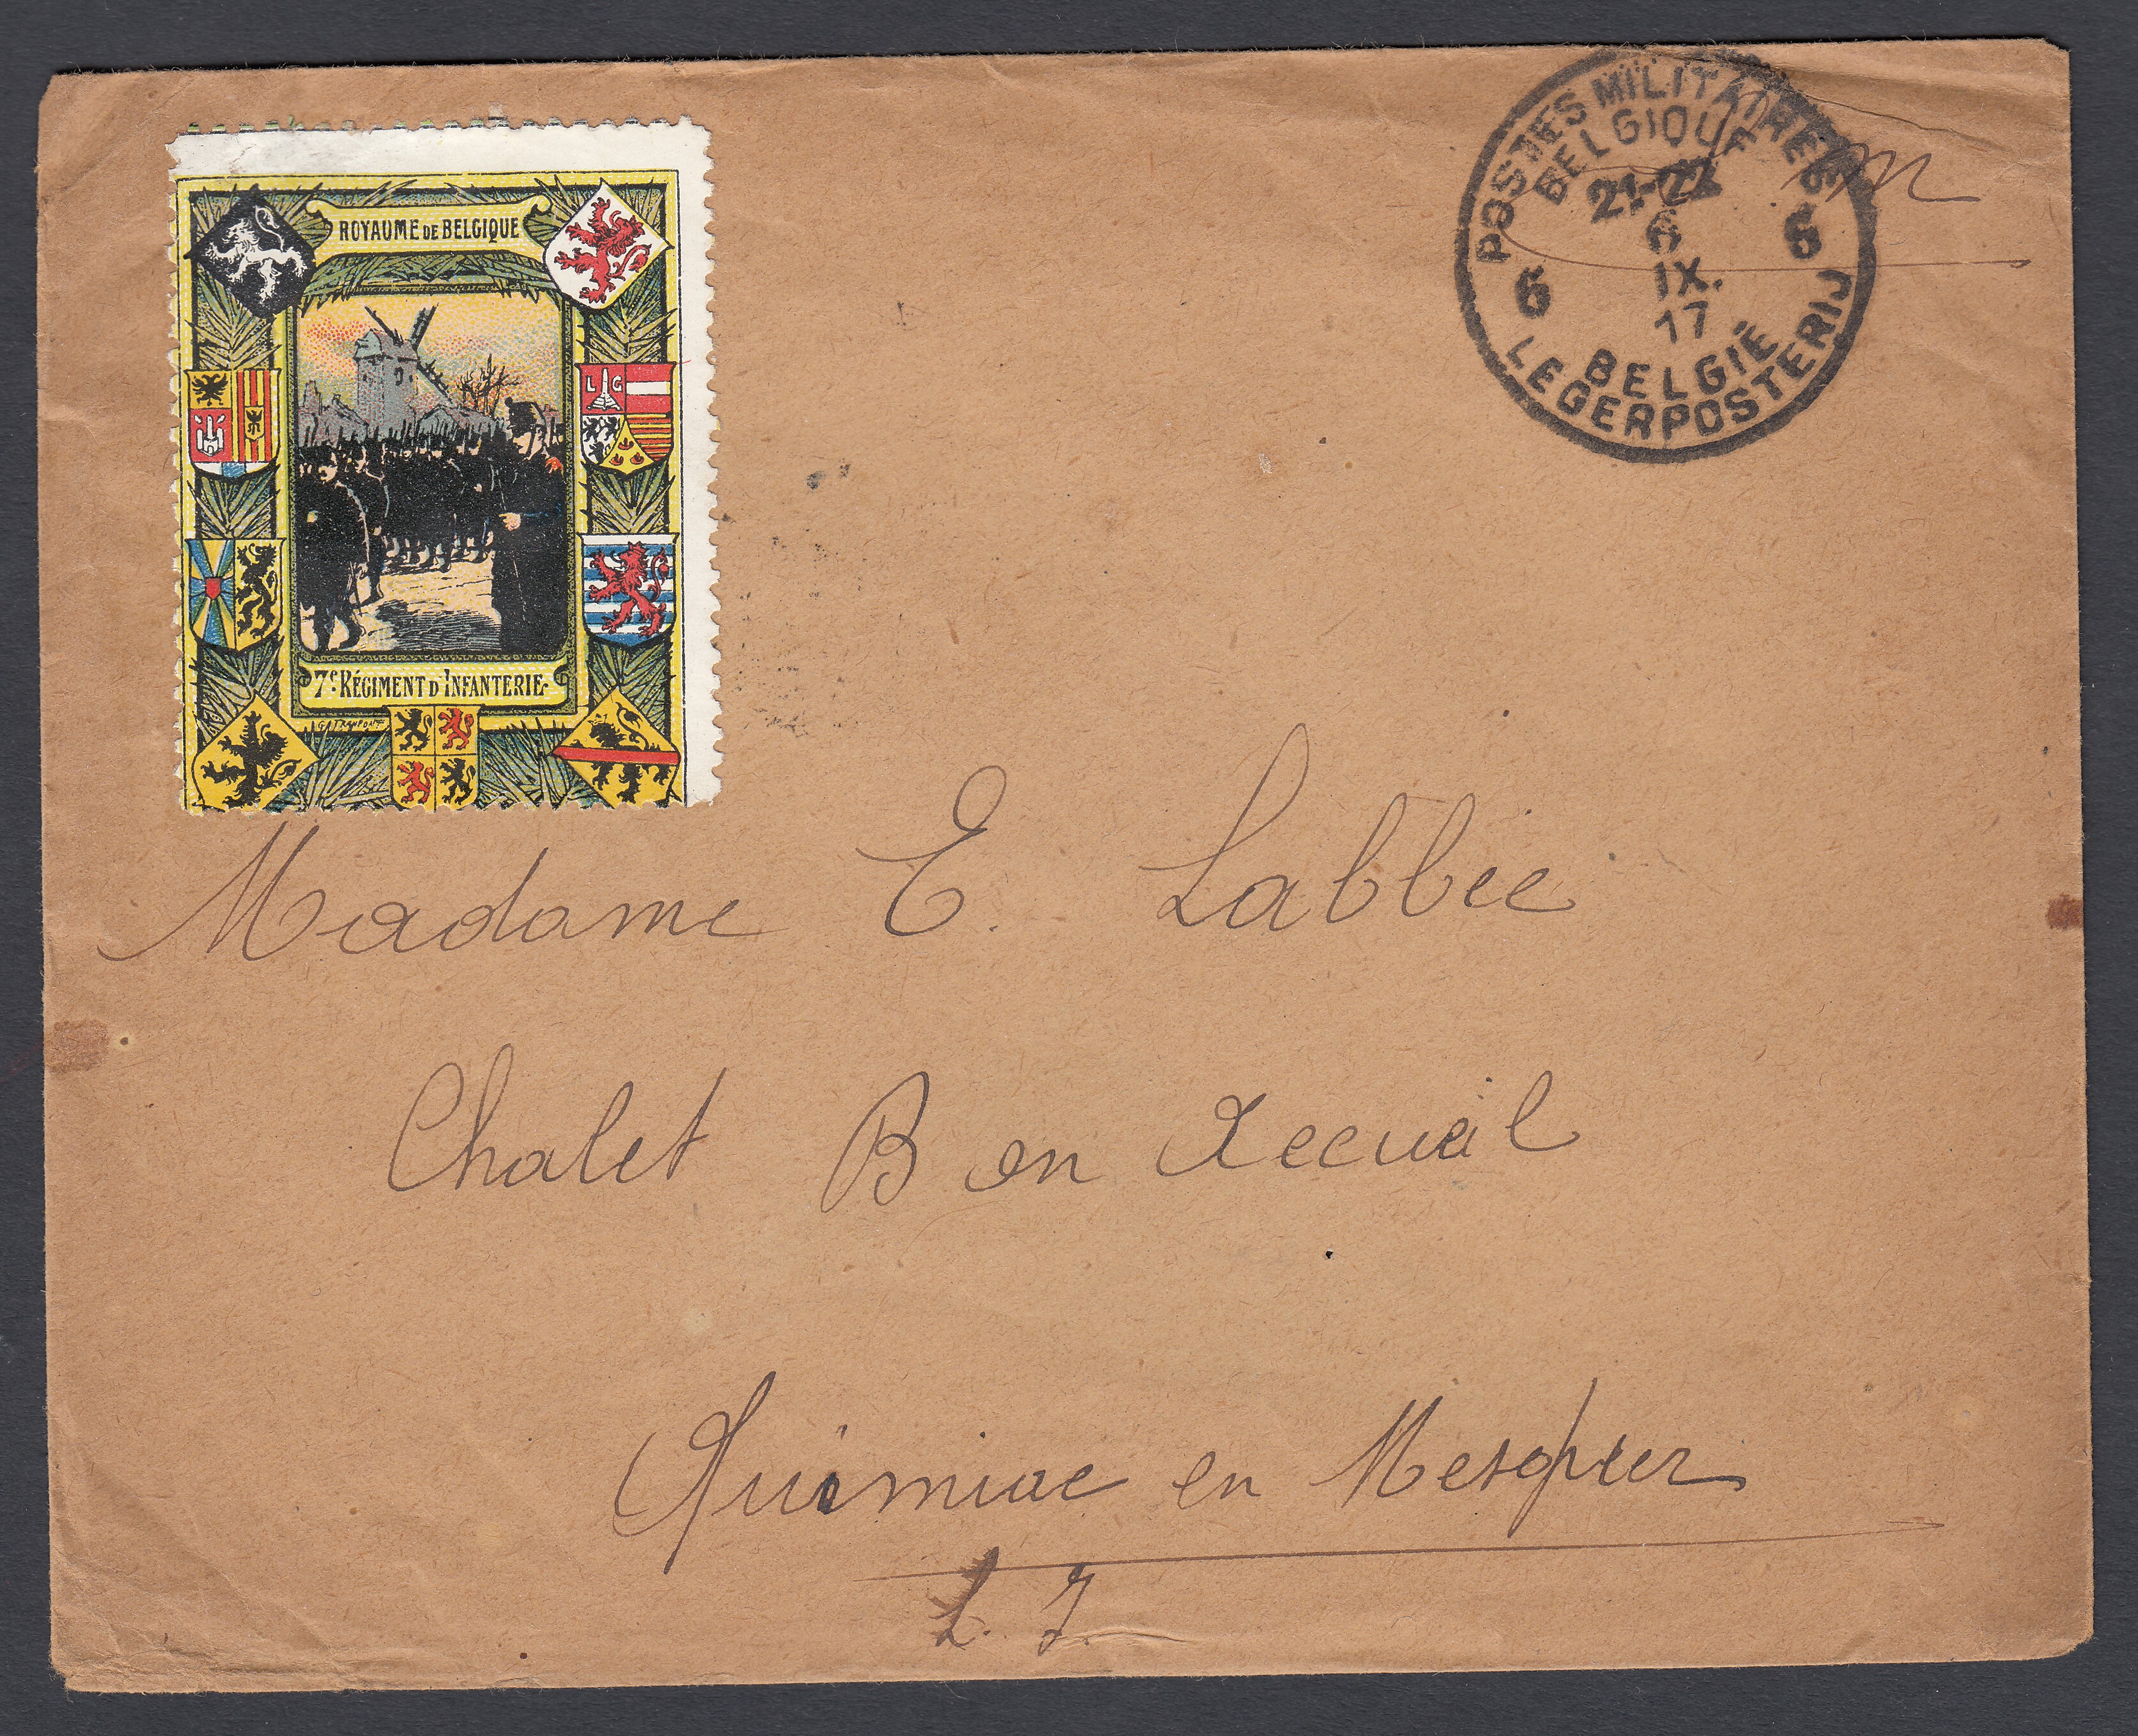 ROYAUME DE BELGIQUE
L G
7e RÉGIMENT D'INFANTERIE
POSTES MILITAIRES
BELGIQUE
21-22
6
IX.
17
6 6
BELGIË
LEGERPOSTERIJ
Madame E. Labbée
Chalet Bon Accueil
Quimiac en Mesquer
L. I.